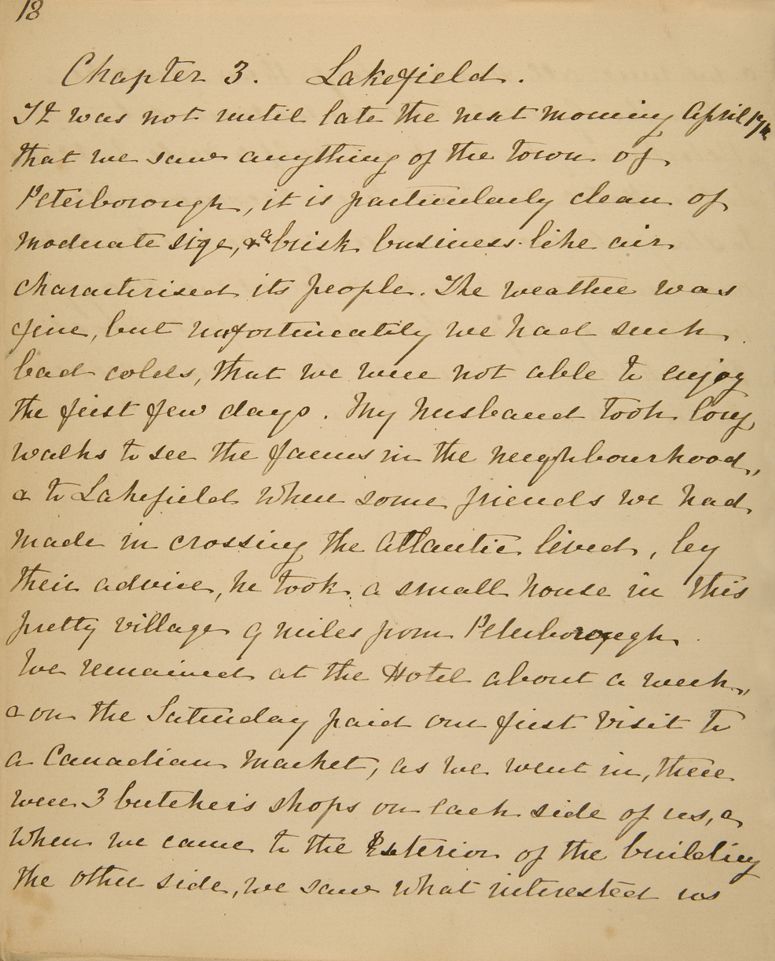 18
Chapter 3. Lakefield.
It was not until late the next morning April 17th
that we saw anything of the town of
Peterborough, it is particularly clean of
moderate size, & a brisk business-like air
characterised its people. The weather was
fine, but unfortunately we had such
bad colds, that we were not able to enjoy
the first few days. My husband took long
walks to see the farms in the neighbourhood,
& to Lakefield where some friends we had
made in crossing the Atlantic lived, by
their advice, he took a small house in this
pretty village 9 miles from Peterborough.
We remained at the Hotel about a week,
& on the Saturday paid our first visit to
a Canadian market, as we went in, there
were 3 butchers shops on each side of us, &
when we came to the Exterior of the building
the other side, we saw what interested us